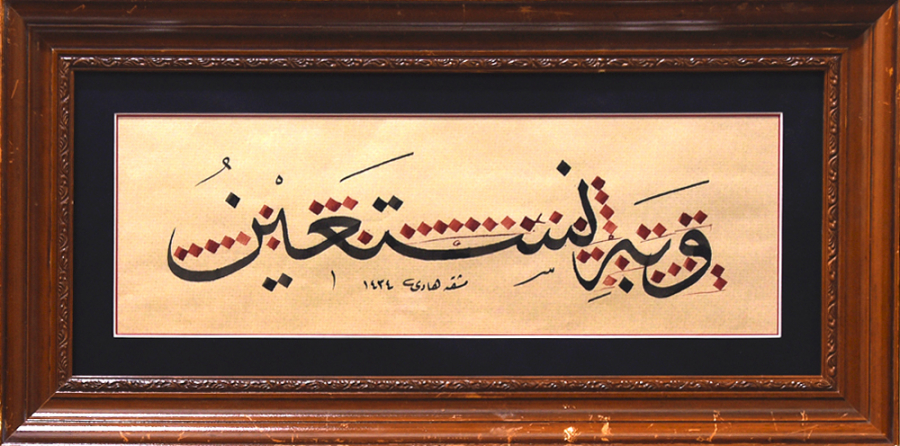 وَبِهِ نَسْتَعِينُ
مشقه هادي ١٤٣٤